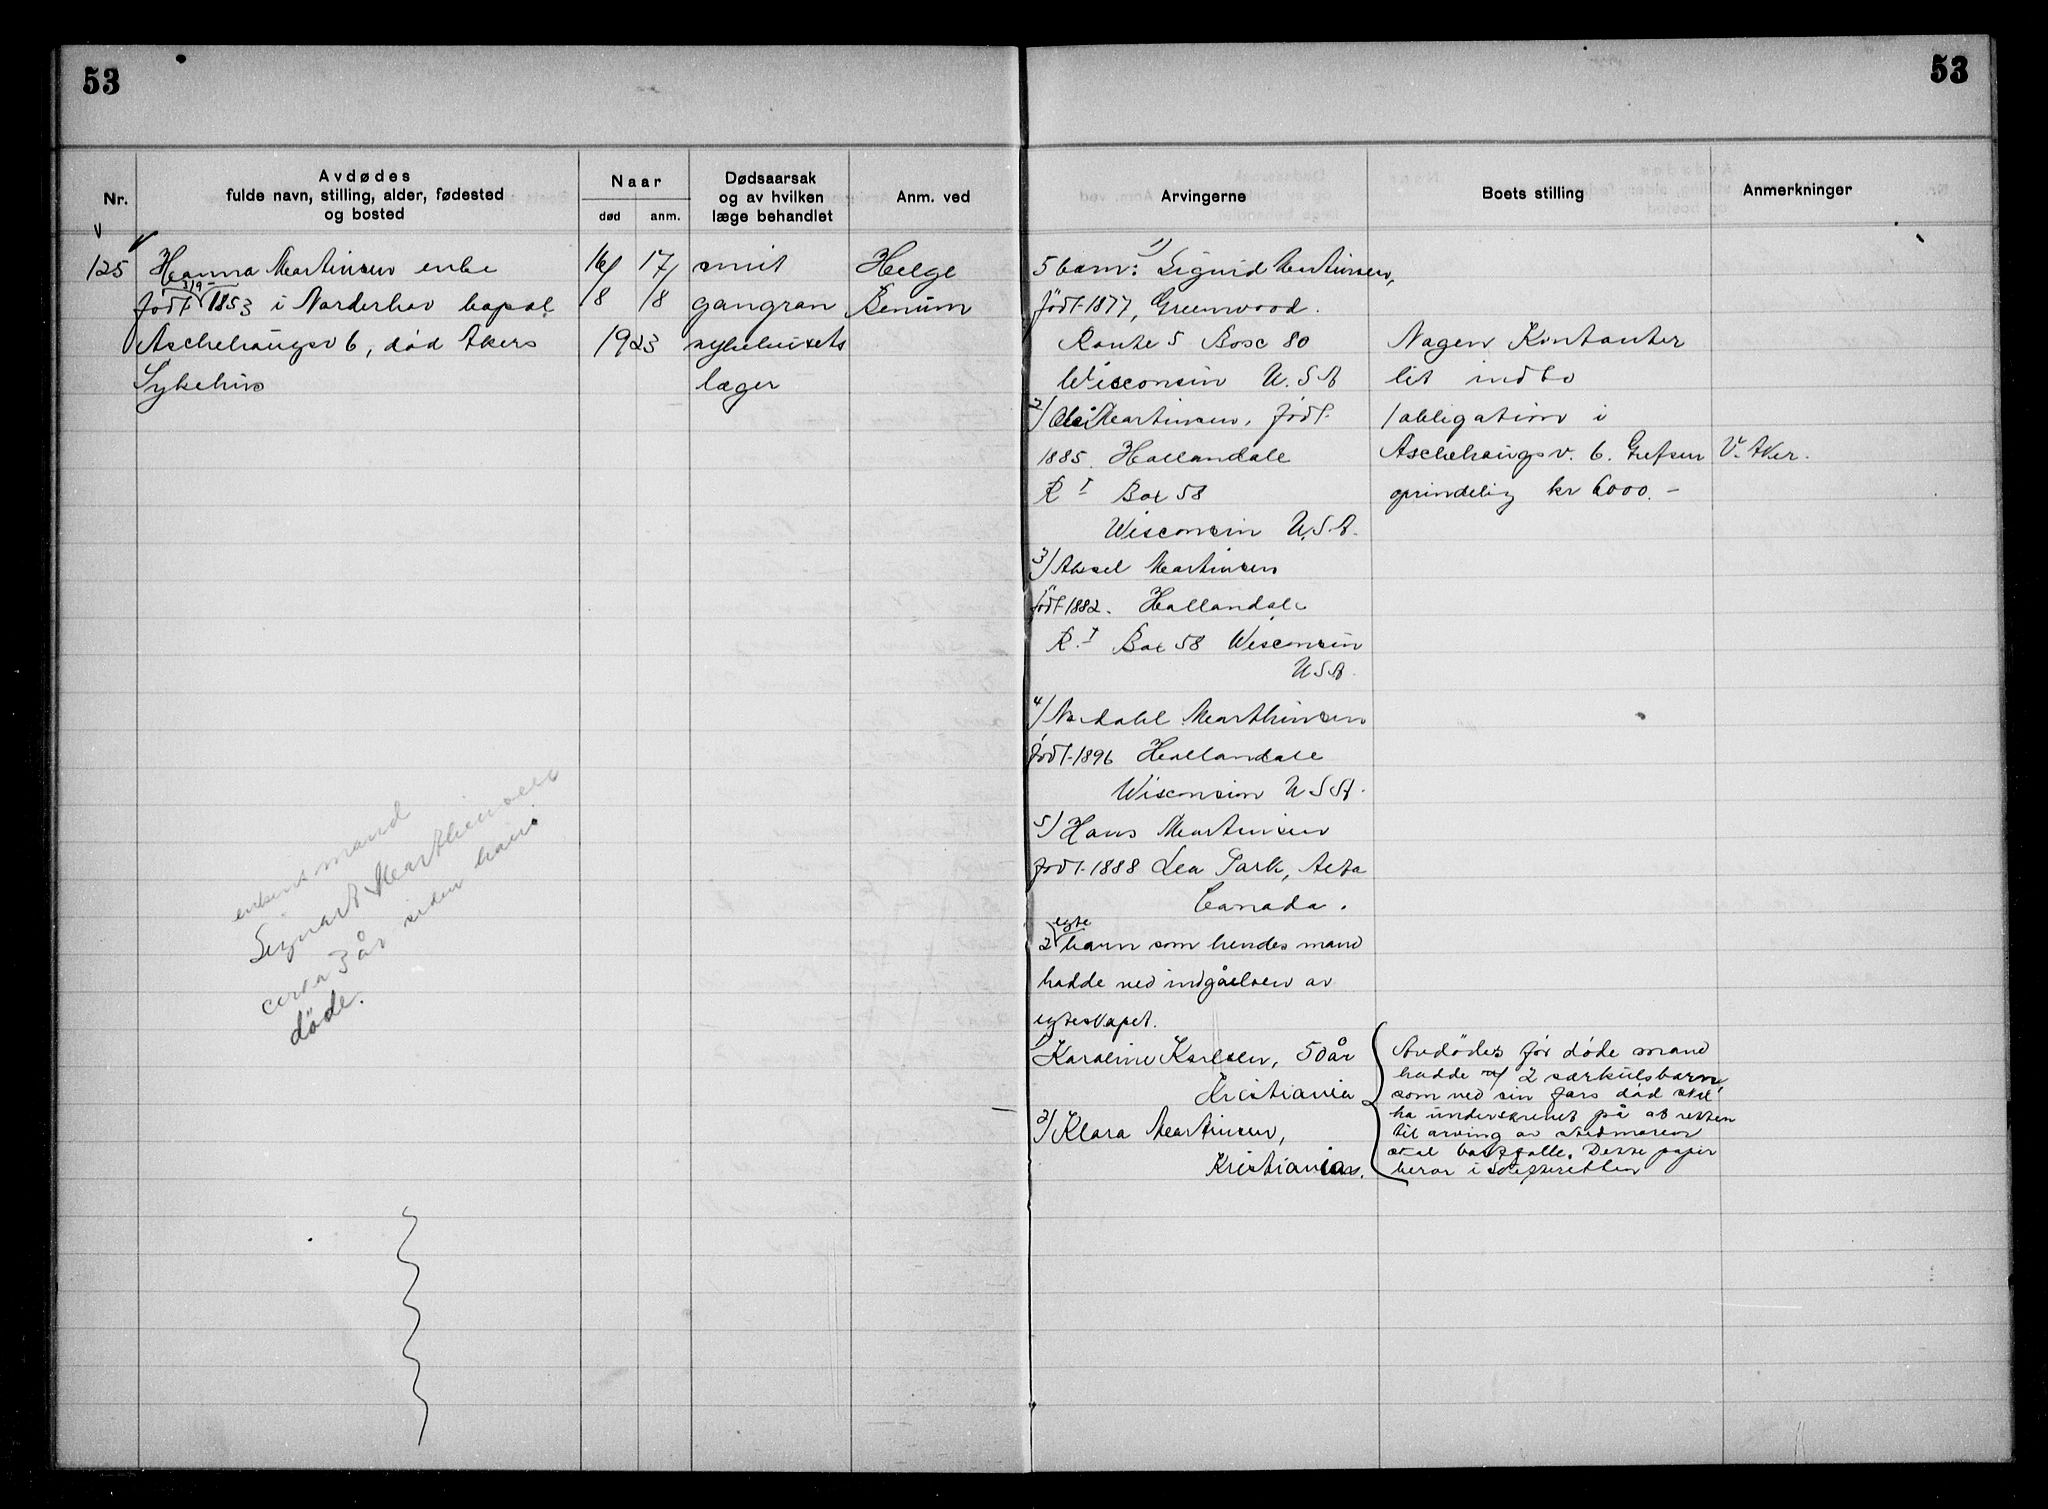 53
53
Nr.
Avdødes
fulde navn, stilling, alder, fødested
og bosted
Naar
død
anm.
Dødsaarsak
og av hvilken
læge behandlet
Anm. ved
Arvingerne
Boets stilling
Anmerkninger
125
Hanna Martinsen enke
3/9-
født 1853 i Norderhov bopæl
Aschehaugsv 6, død Akers
Sykehus
16/8
17/8
1923
senit
gangræn
sykehusets
læger
Helge
Benum
5 barn: 1) Sigrid Martinsen,
født 1877, Greenwood.
Route 5 Box 80
Wisconsin U.S.A
2) Martinsen, født
1885. Hollandale
R I Box 58
Wisconsin U.S.A.
3) Aksel Martinsen
født 1882. Hollandale
R. I Box 58 Wisconsin
U S A.
4) Martinsen
født 1896 Hollandale
Wisconsin U S A.
5) Hans Martinsen
født 1888 Lea Park, Alta
Canada.
egte
2 barn som hendes mand
hadde ved indgåelsen av
egteskapet.
1) Karoline Karlsen, 50 år
Kristiania
2) Klara Martinsen,
Kristiania.
Nogen Kontanter
lit indbo
1 obligation i
Aschehaugsv. 6. Grefsen
oprindelig kr 6000.-
V. Aker.
Avdødes før døde mand
hadde 2 særkulsbarn,
som ved sin fars død skal
ha underskrevet på at retten
til arving av stedmoren
skal bortfalle. Disse papir
beror i Skifteretten
enkens mand
Martinsen
cirka 3 år siden han
døde.